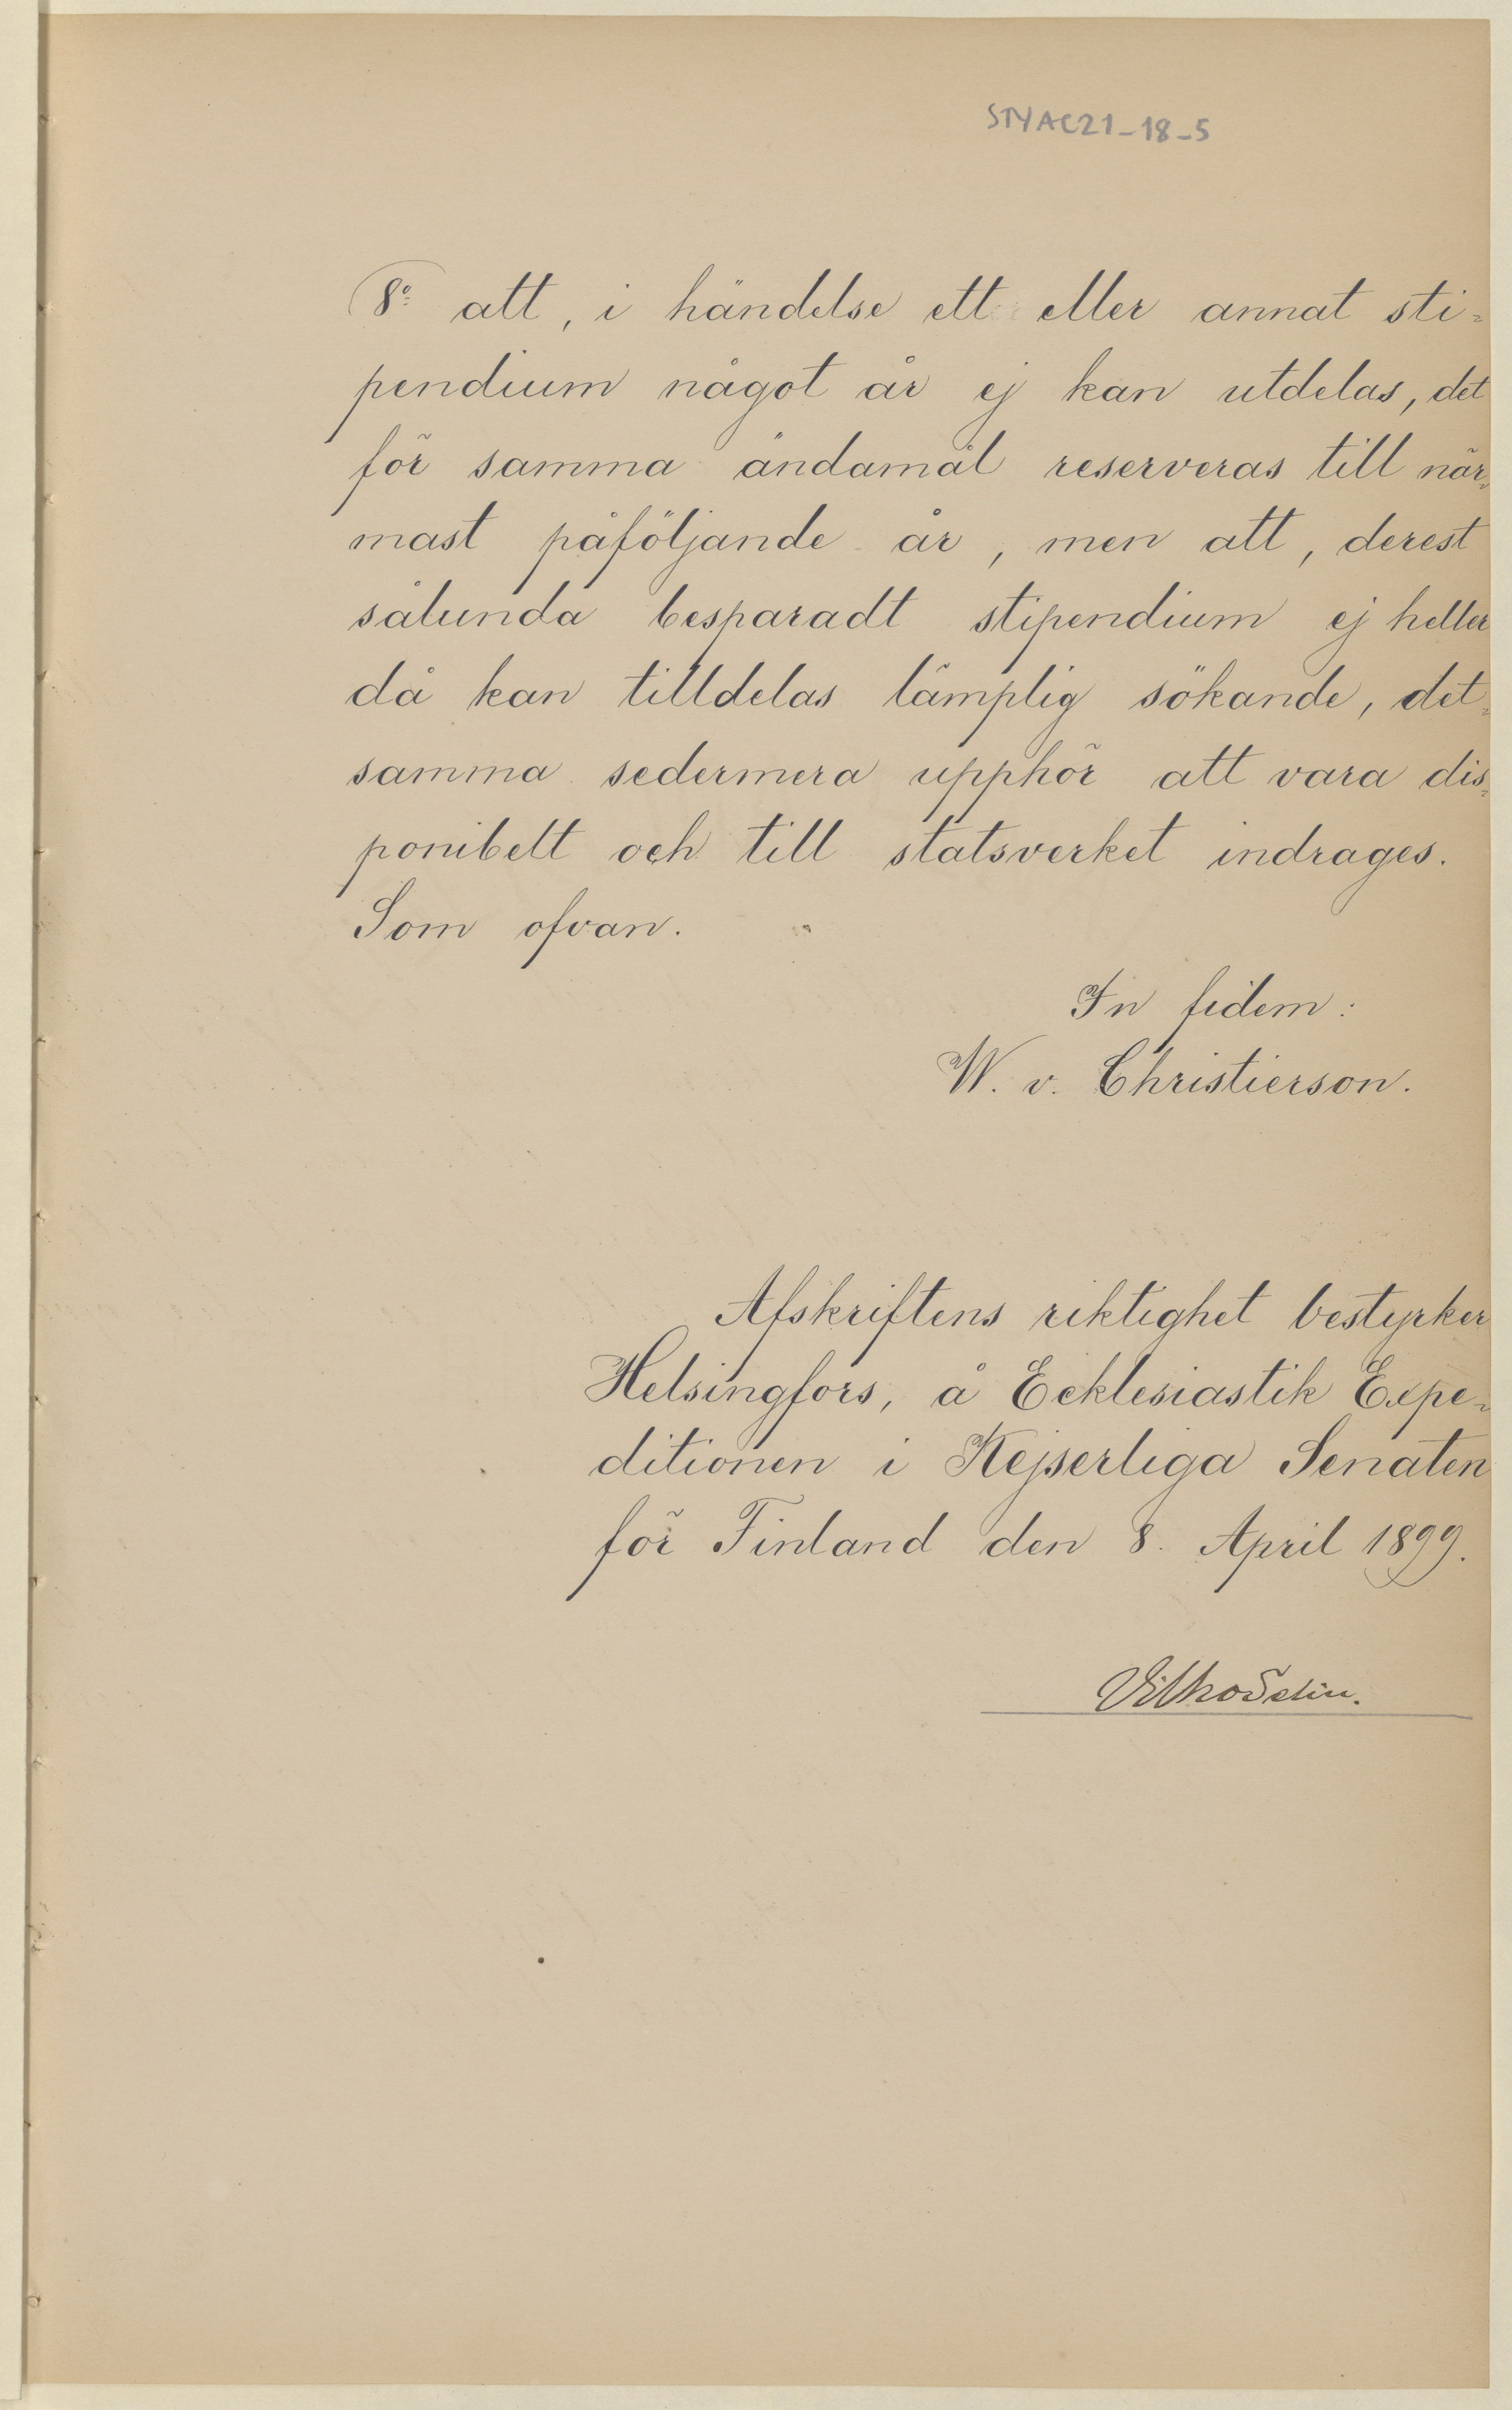 STYAC21_18_5
8º att, i händelse ett eller annat sti=
pendium något år ej kan utdelas, det
för samma ändamål reserveras till när=
mast påföljande år, men att, derest
sålunda besparadt stipendium ej heller
då kan tilldelas lämplig sökande, det=
samma sedermera upphör att vara dis=
ponibelt och till statsverket indrages.
Som ofvan.
In fidem:
W. v. Christierson.
Afskriftens riktighet bestyrker
Helsingfors, å Ecklesiastik Expe=
ditionen i Kejserliga Senaten
för Finland den 8. April 1899.